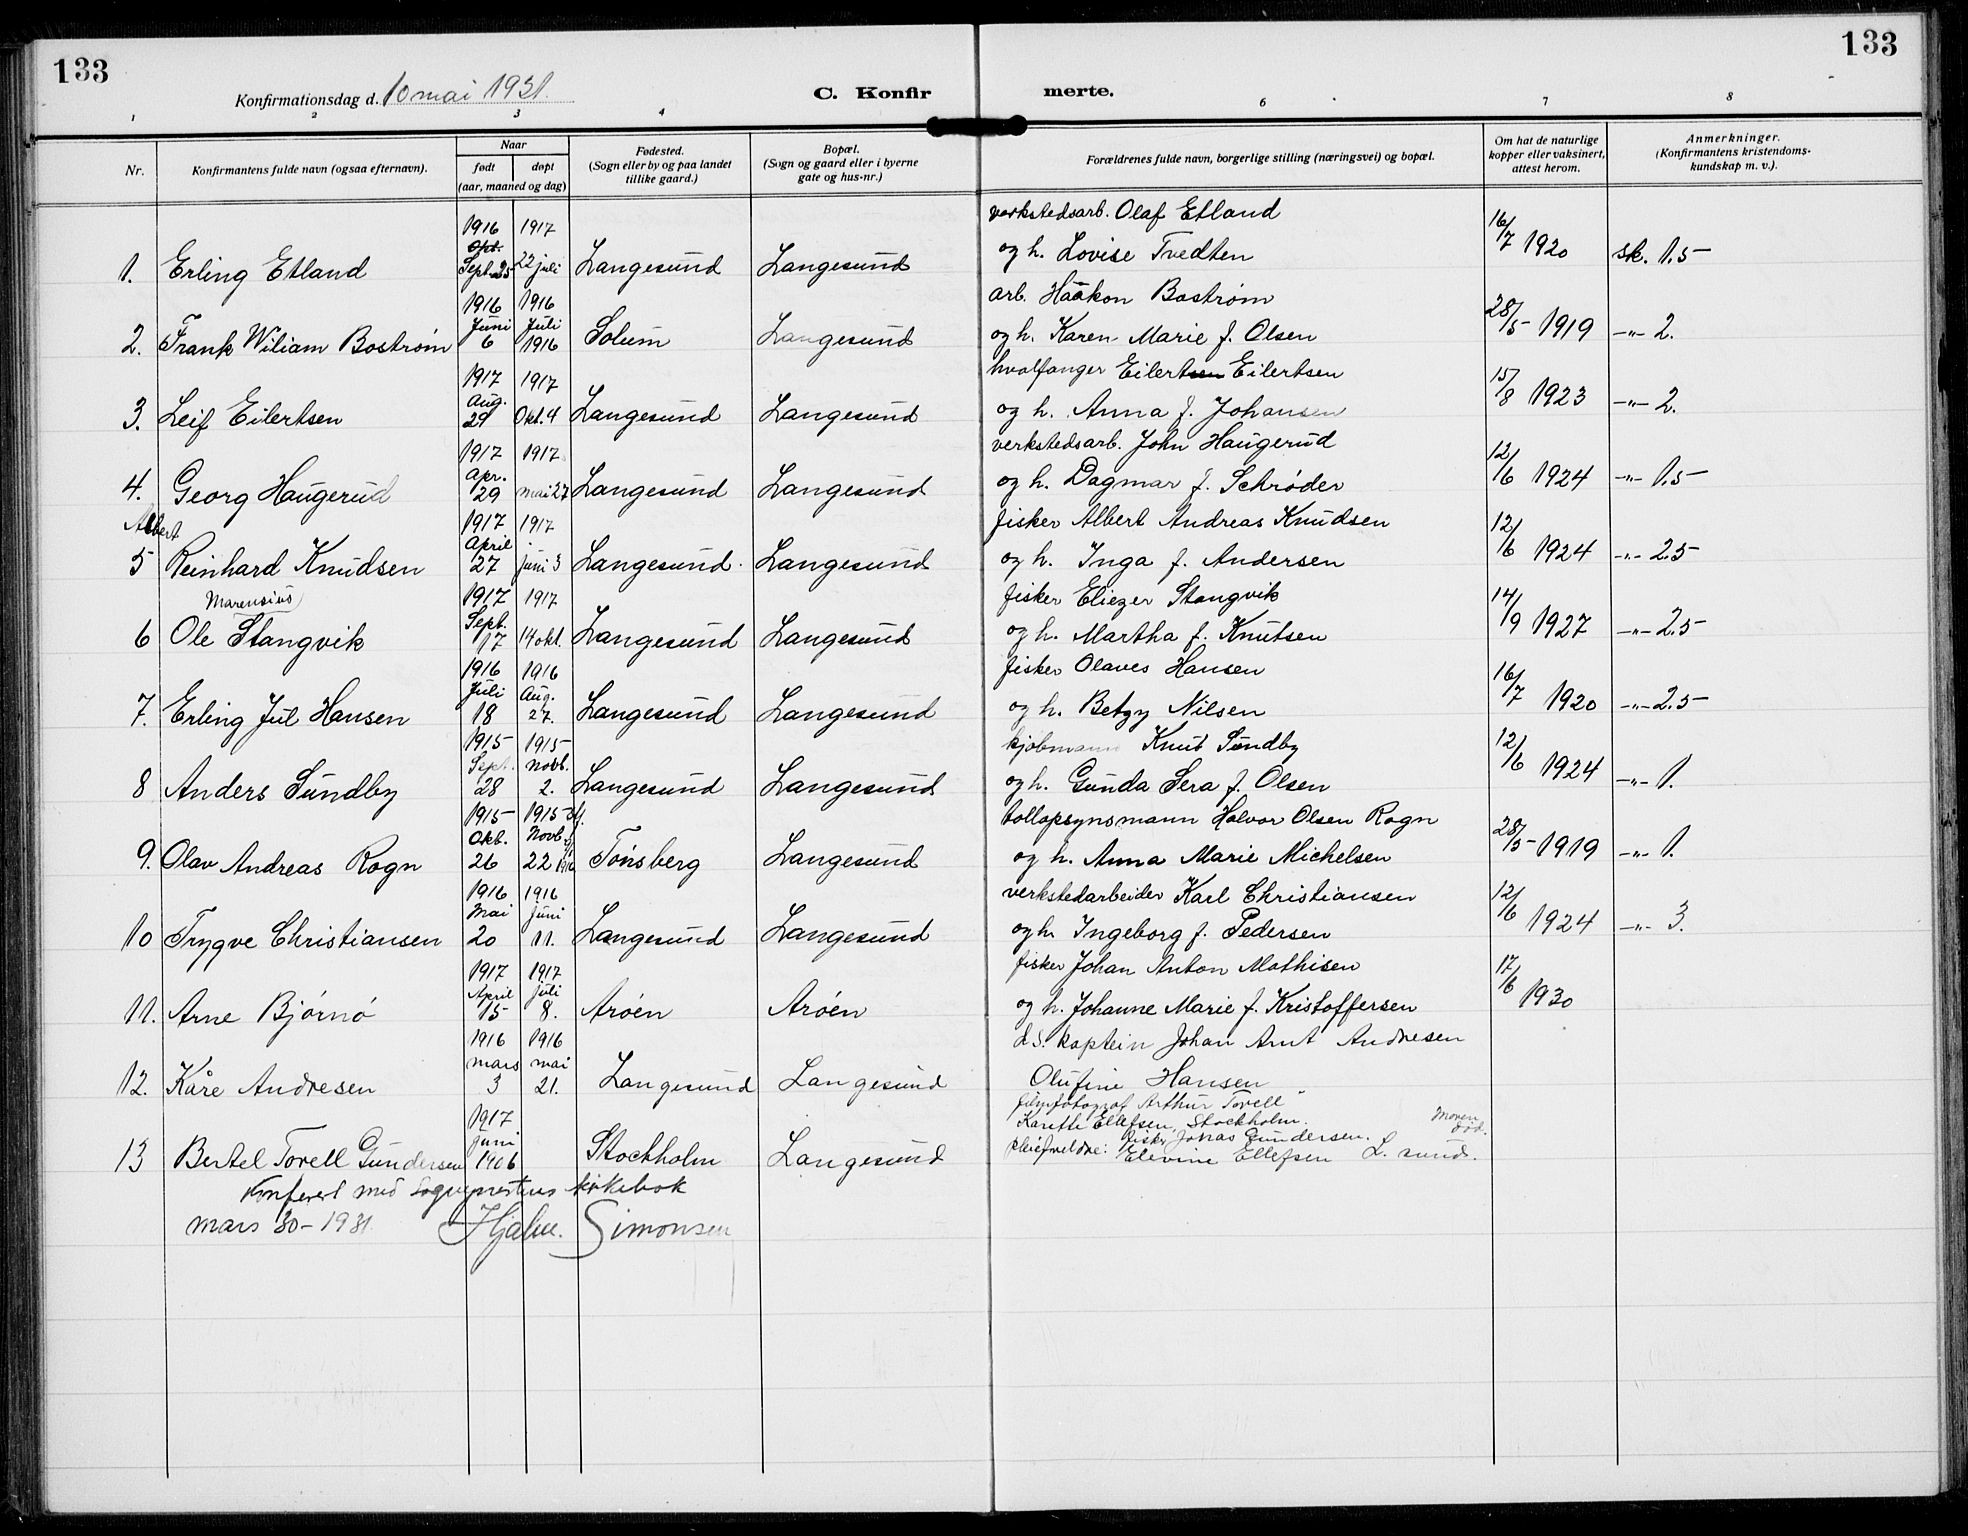 133
133
Konfirmationsdag d. 10 mai 1931.
C. Konfir merte.
1 2 3 4 6 7 8
Nr.
Konfirmantens fulde navn (ogsaa efternavn).
Naar
født døpt
(aar, maaned og dag)
Fødested.
(Sogn eller by og paa landet
tillike gaard.)
Bopæl.
(Sogn og gaard eller i byerne
gate og hus-nr.)
Forældrenes fulde navn, borgerlige stilling (næringsvei) og bopæl.
Om hat de naturlige
kopper eller vaksinert,
attest herom.
Anmerkninger.
(Konfirmantens kristendoms-
kundskap m. v.).
1916 1917 verkstedsarb. Olaf Etland
1. Erling Etland Sept. 25 22 juli Langesund Langesund og h. Lovise Tvedten 16/7 1920 sk. 1.5
1916 1916 arb. Haakon Bostrøm
Juni Juli
2. Frank Wiliam Bostrøm 6 1916 Solum Langesund og h. Karen Marie f. Olsen 28/5 1919 -"- 2.
1917 1917 hvalfanger Eilertsen Eilertsen
Aug.
3. Leif Eilertsen 29 Okt. 4 Langesund Langesund og h. Anna f. Johansen 15/8 1923 -"- 2.
1917 1917 verkstedsarb. John Haugerud
Apr.
4. Georg Haugerud 29 mai 27 Langesund Langesund og h. Dagmar f. Schrøder 12/6 1924 -"- 1.5
Albert 1917 1917 fisker Albert Andreas Knudsen
April
5 Reinhard Knudsen 27 juni 3 Langesund Langesund og h. Inga f. Andersen 12/6 1924 -"- 2.5
Marensius 1917 1917 fisker Eliezer Stangvik
Sept.
6 Ole Stangvik 17 14 okt. Langesund Langesund og h. Martha f. Knutsen 14/9 1927 -"- 2.5
1916 1916 fisker Olaves Hansen
Juli Aug.
7. Erling Jul Hansen 18 27. Langesund Langesund og h. Betzy Nilsen 16/7 1920 -"- 2.5
1915 1915 kjøbmann Knut Sundby
Sept. Novb.
8 Anders Sundby 28 2. Langesund Langesund og h. Gunda Sera f. Olsen 12/6 1924 -"- 1.
1915 1915 tollopsynsmann Halvor Olsen Rogn
Okt. Novb.
9. Olav Andreas Rogn 26 22 Tønsberg Langesund og h. Anna Marie Michelsen 28/5 1919 -"- 1.
1916 1916 verkstedarbeider Karl Christiansen
Mai Juni
10 Trygve Christiansen 20 11. Langesund Langesund og h. Ingeborg f. Pedersen 12/6 1924 -"- 3.
1917 1917 fisker Johan Anton Mathisen
April Juli
11. Arne Bjørnø 15 8. Arøen Arøen og h. Johanne Marie f. Kristoffersen 17/6 1930
1916 1916 d.s. kaptein Johan Arnt Andresen
mars mai
12. Kåre Andresen 3 21. Langesund Langesund Olufine Hansen
1917 filmfotograf Arthur Torell
Karethe Ellefsen, Stockholm. Moren død.
juni fisker Jonas Gundersen.
13 Bertel Torell Gundersen 1906 Stockholm Langesund Pleieforeldre: Elevine Ellefsen L. sund.
Konferert med Sogneprestens kirkebok
mars 30-1931. Hjalm. Simonsen